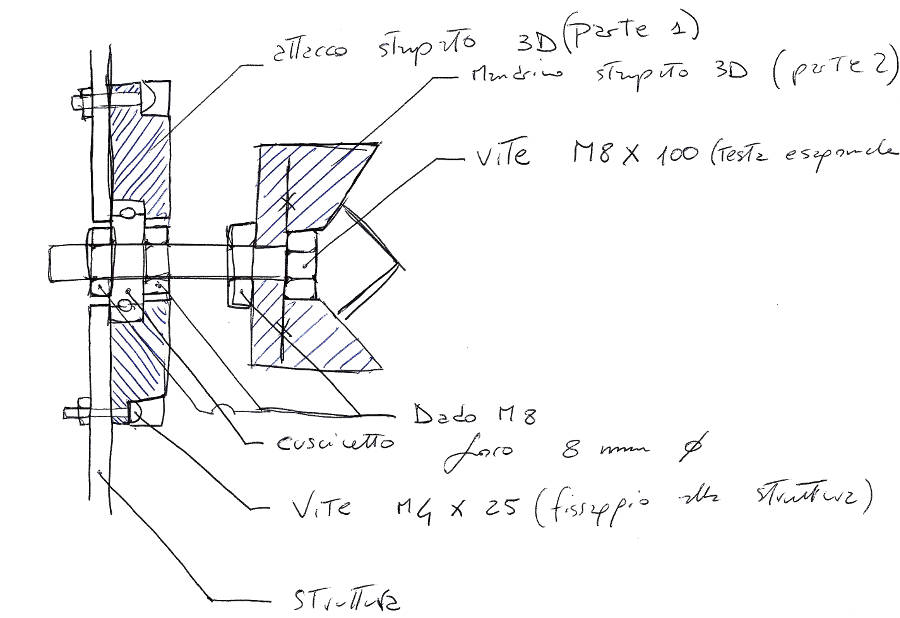 attacco stampato 3D (parte 1)
Mandrino stampato 3D (parte 2)
VITE M8 X 100 (Testa esagonale
Dado M8
cuscinetto foro 8 mm ϕ
VITE M4 X 25 (fissaggio alla struttura)
struttura